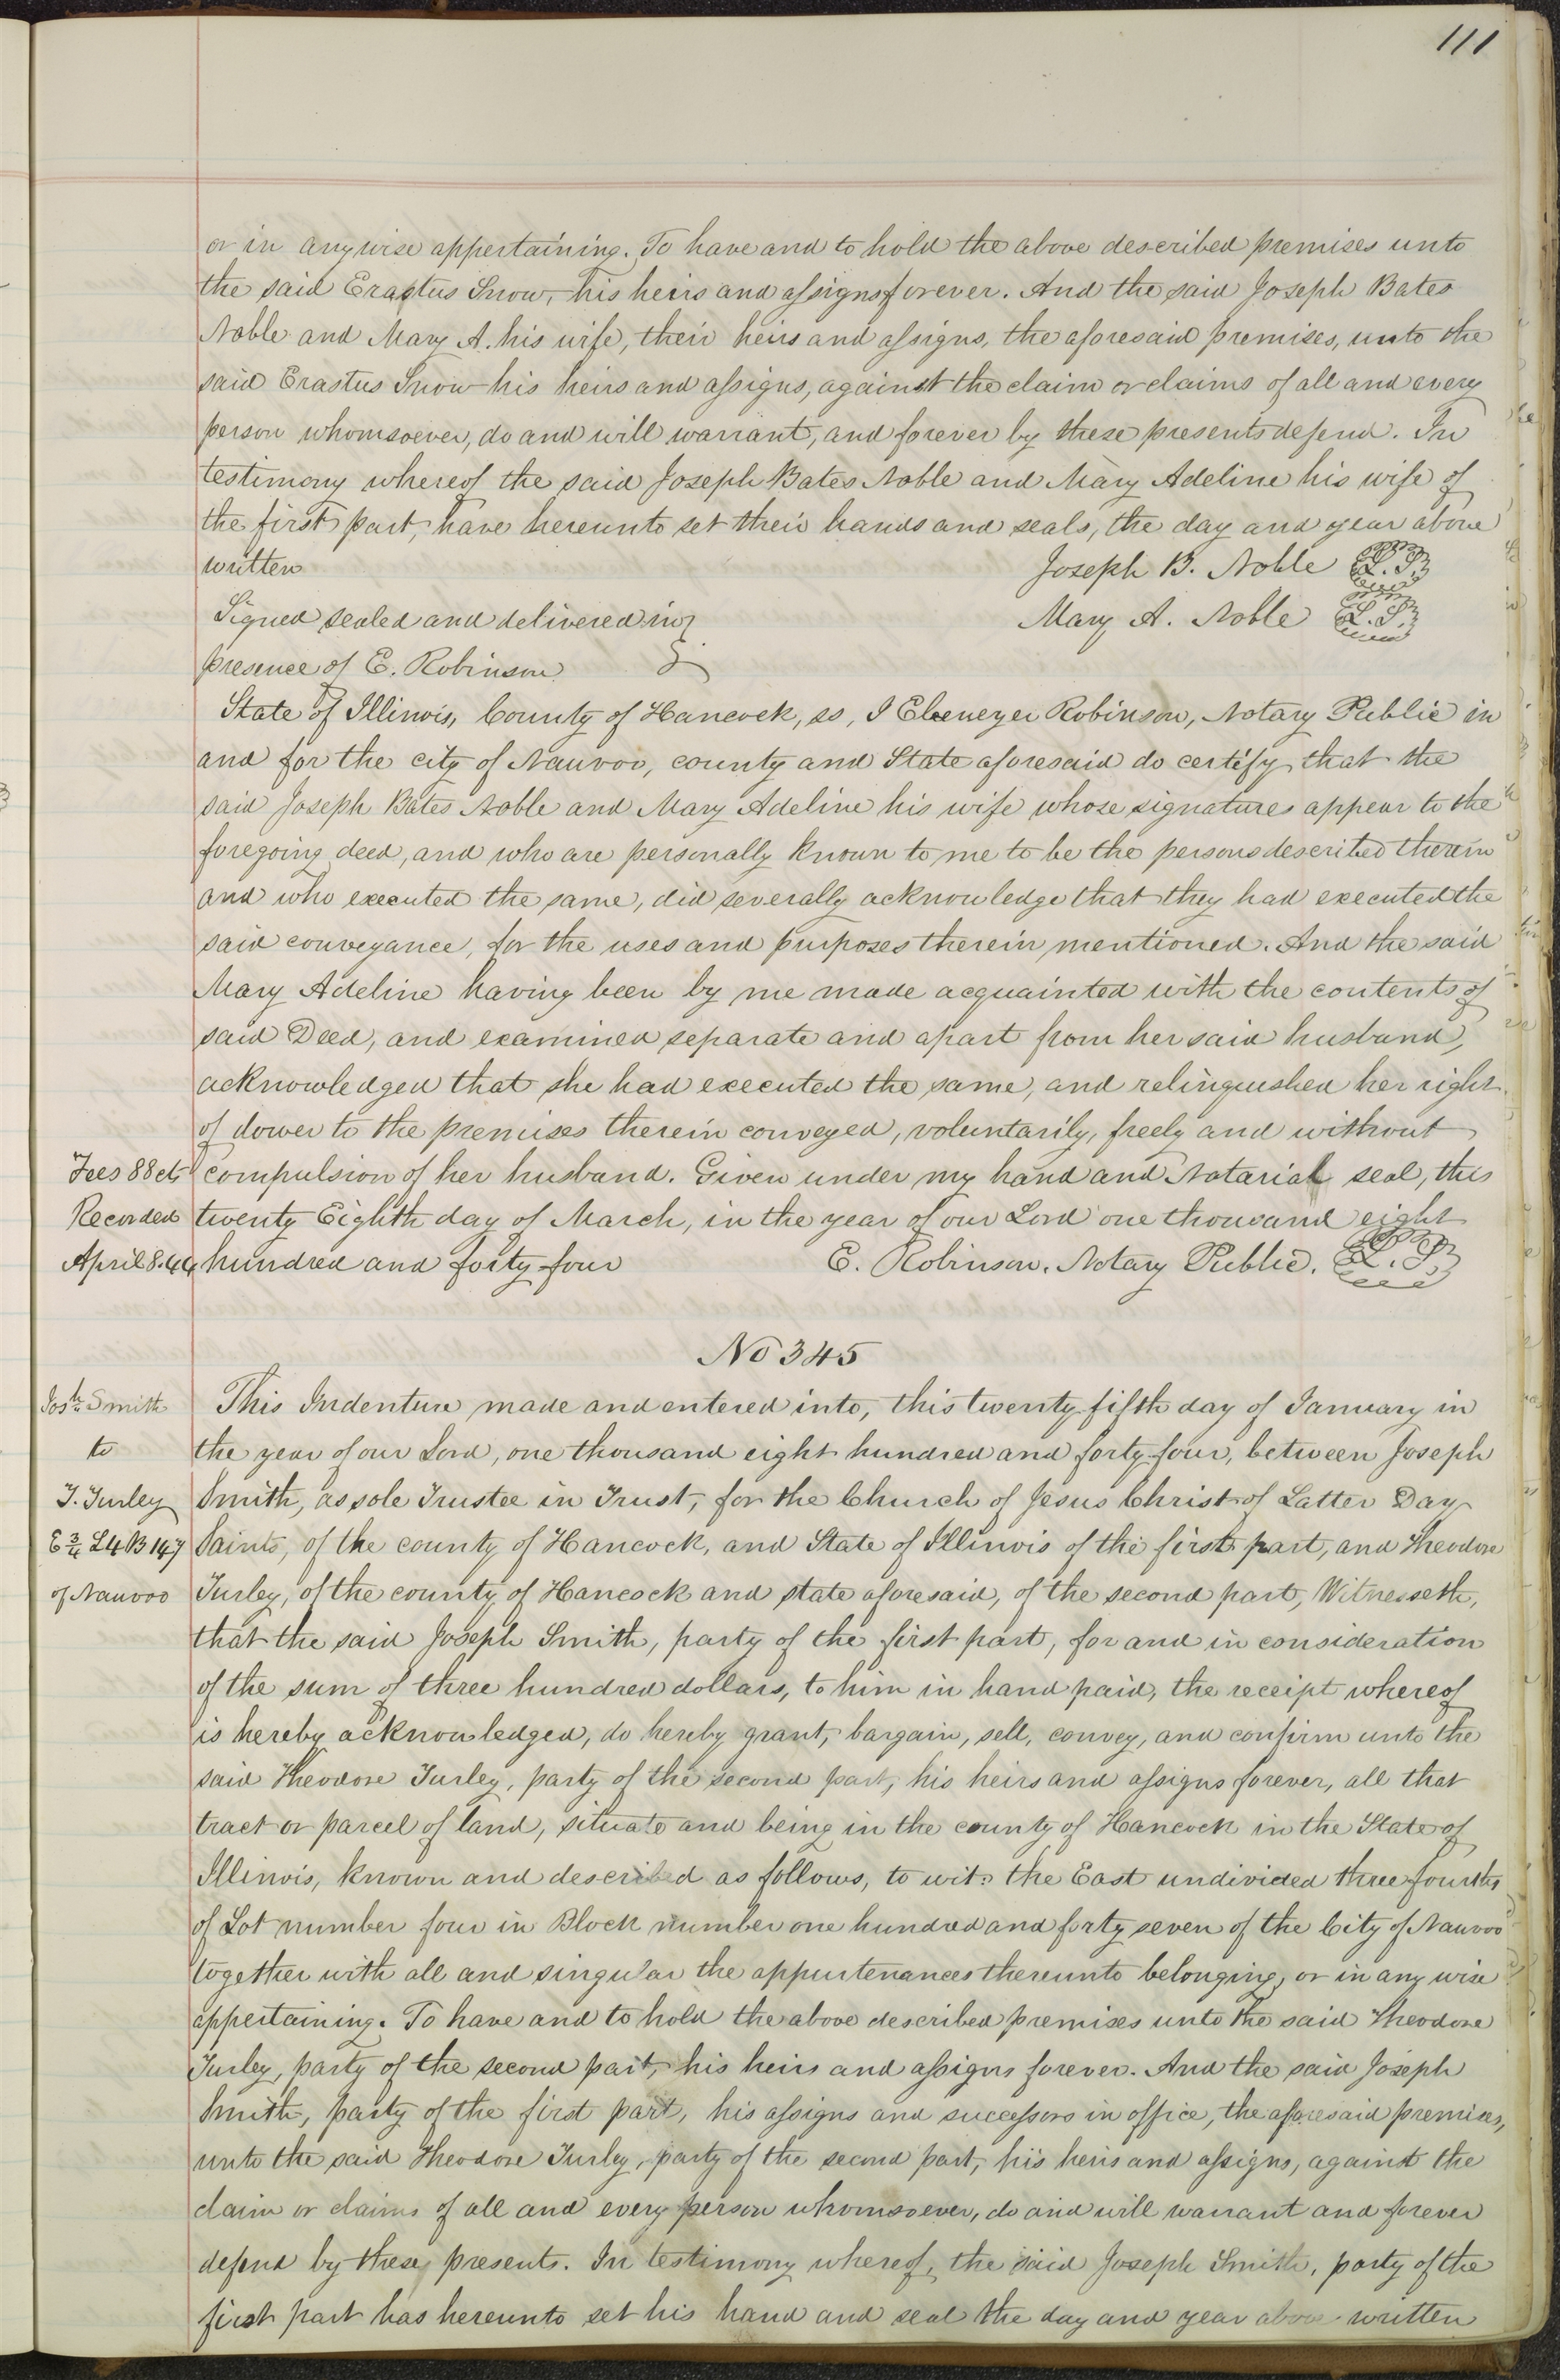 111
or in anywise appertaining. To have and to hold the above described premises unto
the said Erastus Snow, his heirs and assigns forever. And the said Joseph Bates
Noble and Mary A. his wife, their heirs and assigns, the aforesaid premises, unto the
said Erastus Snow his heirs and assigns, against the claim or claims of all and every
person whomsoever, do and will warrant, and forever by these presents defend. In
testimony whereof the said Joseph Bates Noble and Mary Adeline his wife of
the first part, have hereunto set their hands and seals, the day and year above
written Joseph B. Noble L.S.
Signed sealed and delivered in Mary A. Noble L.S.
presence of E. Robinson
State of Illinois, County of Hancock, ss, I Ebenezer Robinson, Notary Public in
and for the city of Nauvoo, county and State aforesaid do certify that the
said Joseph Bates Noble and Mary Adeline his wife whose signatures appear to the
foregoing deed, and who are personally known to me to be the persons described therein
and who executed the same, did severally acknowledge that they had executed the
said conveyance, for the uses and purposes therein mentioned. And the said
Mary Adeline having been by me made acquainted with the contents of
said Deed, and examined separate and apart from her said husband,
acknowledged that she had executed the same, and relinquished her right
of dower to the premises therein conveyed, voluntarily, freely and without
Fees 88 cts compulsion of her husband. Given under my hand and Notarial seal, this
Recorded twenty Eighth day of March, in the year of our Lord one thousand eight
April 8. 44 hundred and forty-four E. Robinson. Notary Public. L.S.
No 345
Josh Smith This Indenture made and entered into, this twenty-fifth day of January in
to the year of our Lord, one thousand eight hundred and forty-four, between Joseph
T. Turley Smith, as sole Trustee in Trust, for the Church of Jesus Christ of Latter Day
E 3/4 L4 B 147 Saints, of the county of Hancock, and State of Illinois of the first part, and Theodore
of Nauvoo Turley, of the county of Hancock and state aforesaid, of the second part, Witnesseth,
that the said Joseph Smith, party of the first part, for and in consideration
of the sum of three hundred dollars, to him in hand paid, the receipt whereof
is hereby acknowledged, do hereby grant, bargain, sell, convey, and confirm unto the
said Theodore Turley, party of the second part, his heirs and assigns forever, all that
tract or parcel of land, situate and being in the county of Hancock in the State of
Illinois, known and described as follows, to wit: the East undivided three-fourths
of Lot number four in Block number one hundred and forty seven of the City of Nauvoo
together with all and singular the appurtenances thereunto belonging, or in any wise
appertaining. To have and to hold the above described premises unto the said Theodore
Turley, party of the second part, his heirs and assigns forever. And the said Joseph
Smith, party of the first part, his assigns and successors in office, the aforesaid premises,
unto the said Theodore Turley, party of the second part, his heirs and assigns, against the
claim or claims of all and every person whomsoever, do and will warrant and forever
defend by these presents. In testimony whereof, the said Joseph Smith, party of the
first part has hereunto set his hand and seal the day and year above written